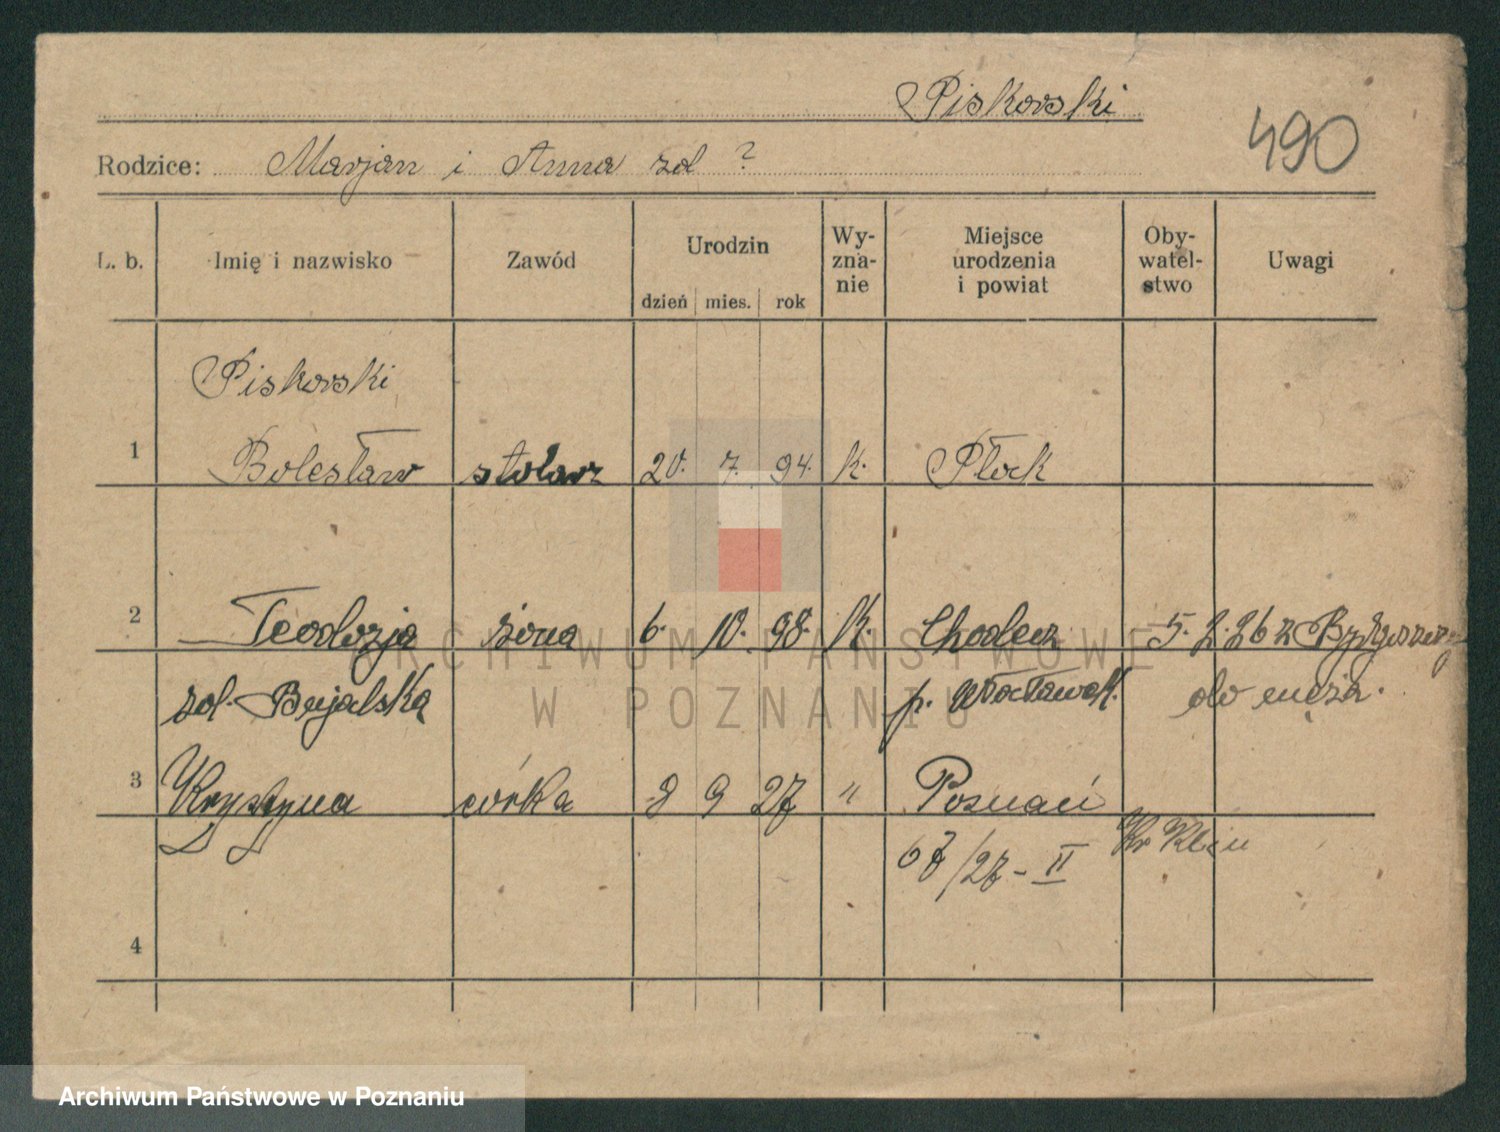 Piskorski
490
Rodzice: Marjan i Anna zol ?
L. b. Imię i nazwisko Zawód Urodzin Wy-zna-nie Miejsce urodzenia i powiat Oby-watel-stwo Uwagi
dzień mies. rok
Piskorski
1 Bolesław stolarz 20. 7. 94. k. Płock
2 Teodozja żona 6. 10. 98. k. Chodecz 5. 2. 26 z Bydgoszczy
zol. Bujalska p. Włocławek. do męża.
3 Krystyna córka 8 9 27 " Poznań
67/27 - II
4
ARCHIWUM PAŃSTWOWE
W POZNANIU
Archiwum Państwowe w Poznaniu